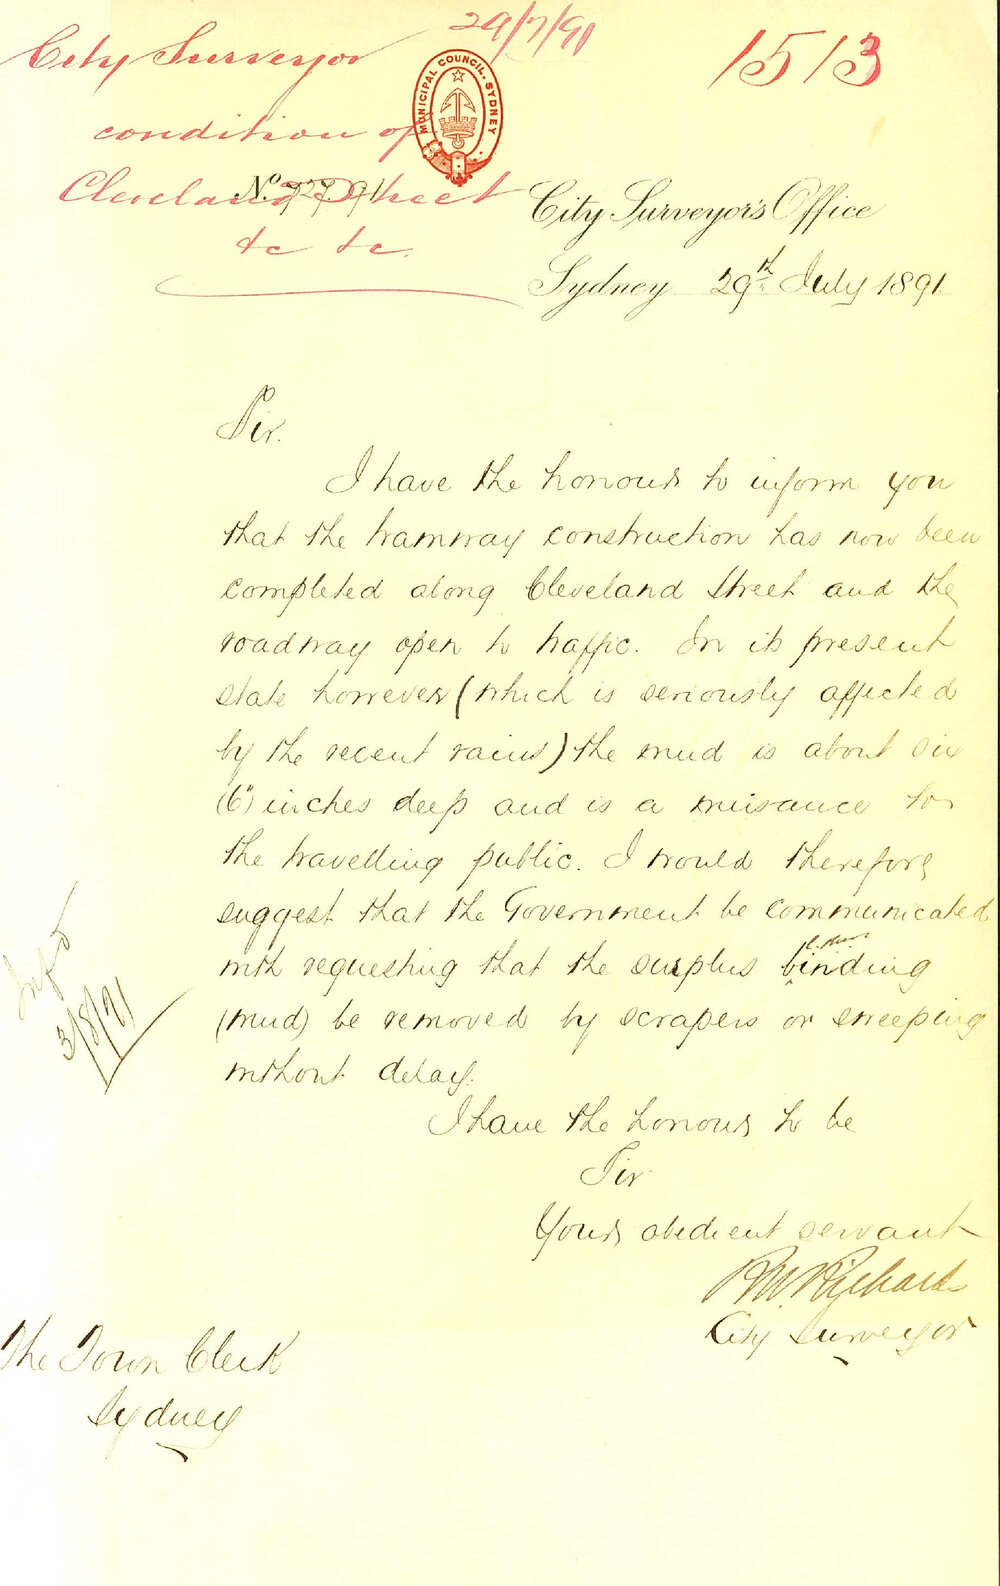 29/7/91
1513
City Surveyor
condition of
Cleveland Street
&c &c.
MUNICIPAL COUNCIL. SYDNEY
No. 727.91
City Surveyor's Office
Sydney 29th July 1891
Sir.
I have the honour to inform you
that the tramway construction has now been
completed along Cleveland Street and the
roadway open to traffic. In its present
state however (which is seriously affected
by the recent rains) the mud is about six
(6") inches deep and is a nuisance to
the travelling public. I would therefore
suggest that the Government be communicated
with requesting that the surplus binding
(mud) be removed by scrapers or sweeping
without delay.
I have the honour to be
Sir
Yours obedient servant
R.W. Richards
City Surveyor
3/8/91
The Town Clerk
Sydney